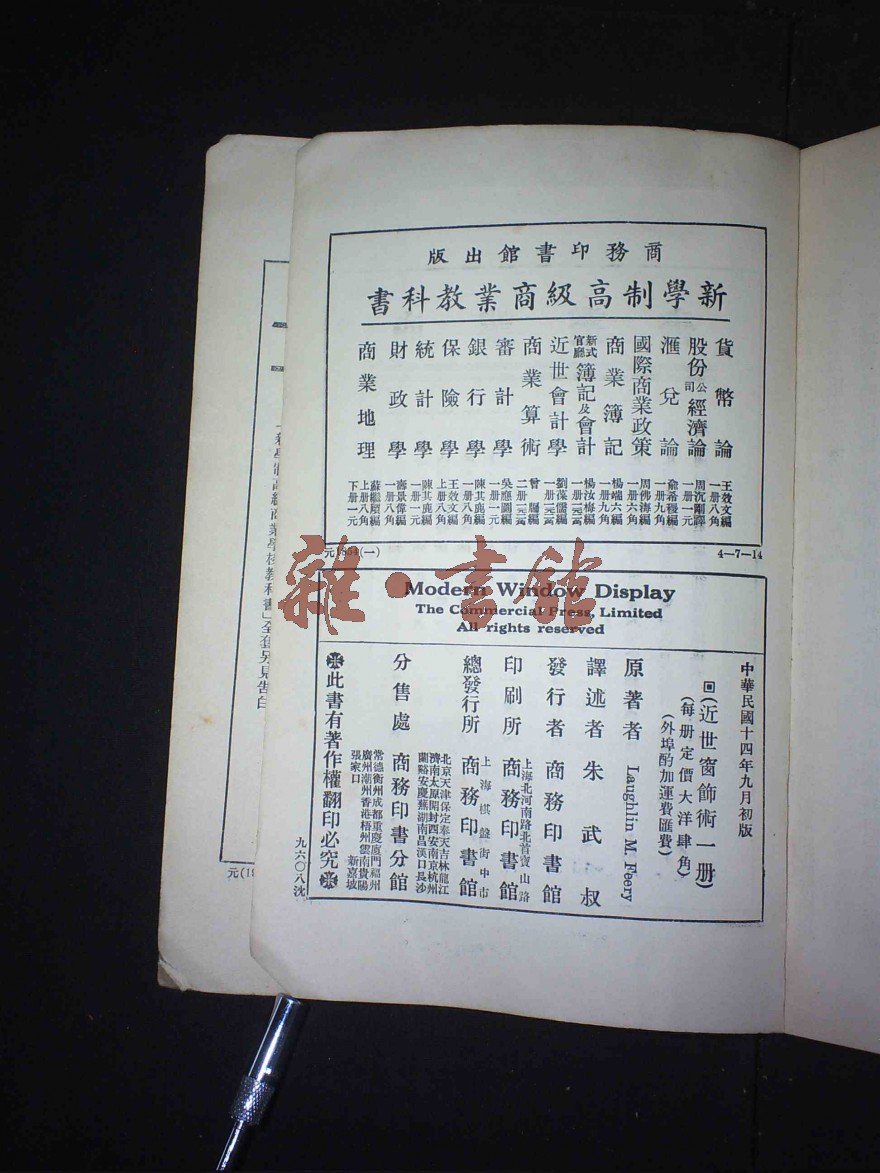 商務印書館出版
新學制高級商業教科書
貨幣論 王效文編 一册八角
股份公司經濟論 周沈剛譯 一册一元
滙兌論 俞希稷編 一册九角
國際商業政策 周佛海編 一册六角
商業簿記 楊端六編 一册九角
新式官廳簿記及會計 楊汝梅編
近世會計學 劉葆儒編
商業算術 曾牖編
審計學 吳應圖編 一册一元
銀行學 陳其鹿編 一册八角
保險學 王效文編 上册八角
統計學 陳其鹿編 一册一元
財政學 壽景偉編 一册八角
商業地理 蘇繼廎編 上册八角 下册一元
4—7—14
Modern Window Display
The Commercial Press, Limited
All rights reserved
中華民國十四年九月初版
(近世窗飾術一册)
(每册定價大洋肆角)
(外埠酌加運費匯費)
原著者 Laughlin M. Feery
譯述者 朱武叔
發行者 商務印書館
印刷所 上海北河南路北首寶山路 商務印書館
總發行所 上海棋盤街中市 商務印書館
北京天津保定奉天吉林龍江
濟南太原開封西安南京杭州
蘭谿安慶蕪湖南昌漢口長沙
分售處 商務印書分館
常德衡州成都重慶廈門福州
廣州潮州香港梧州雲南貴陽
張家口 新嘉坡
此書有著作權翻印必究
九六〇八沈
雜·書館